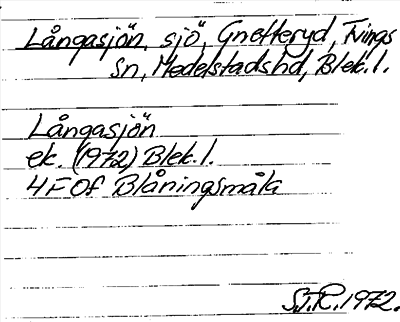 Långasjön, sjö, Gnetteryd, Tvings
Sn, Medelstadshd, Blek. l.
Långasjön
ek. (1972) Blek. l.
4F0f Blåningsmåla
S.T.R. 1972.